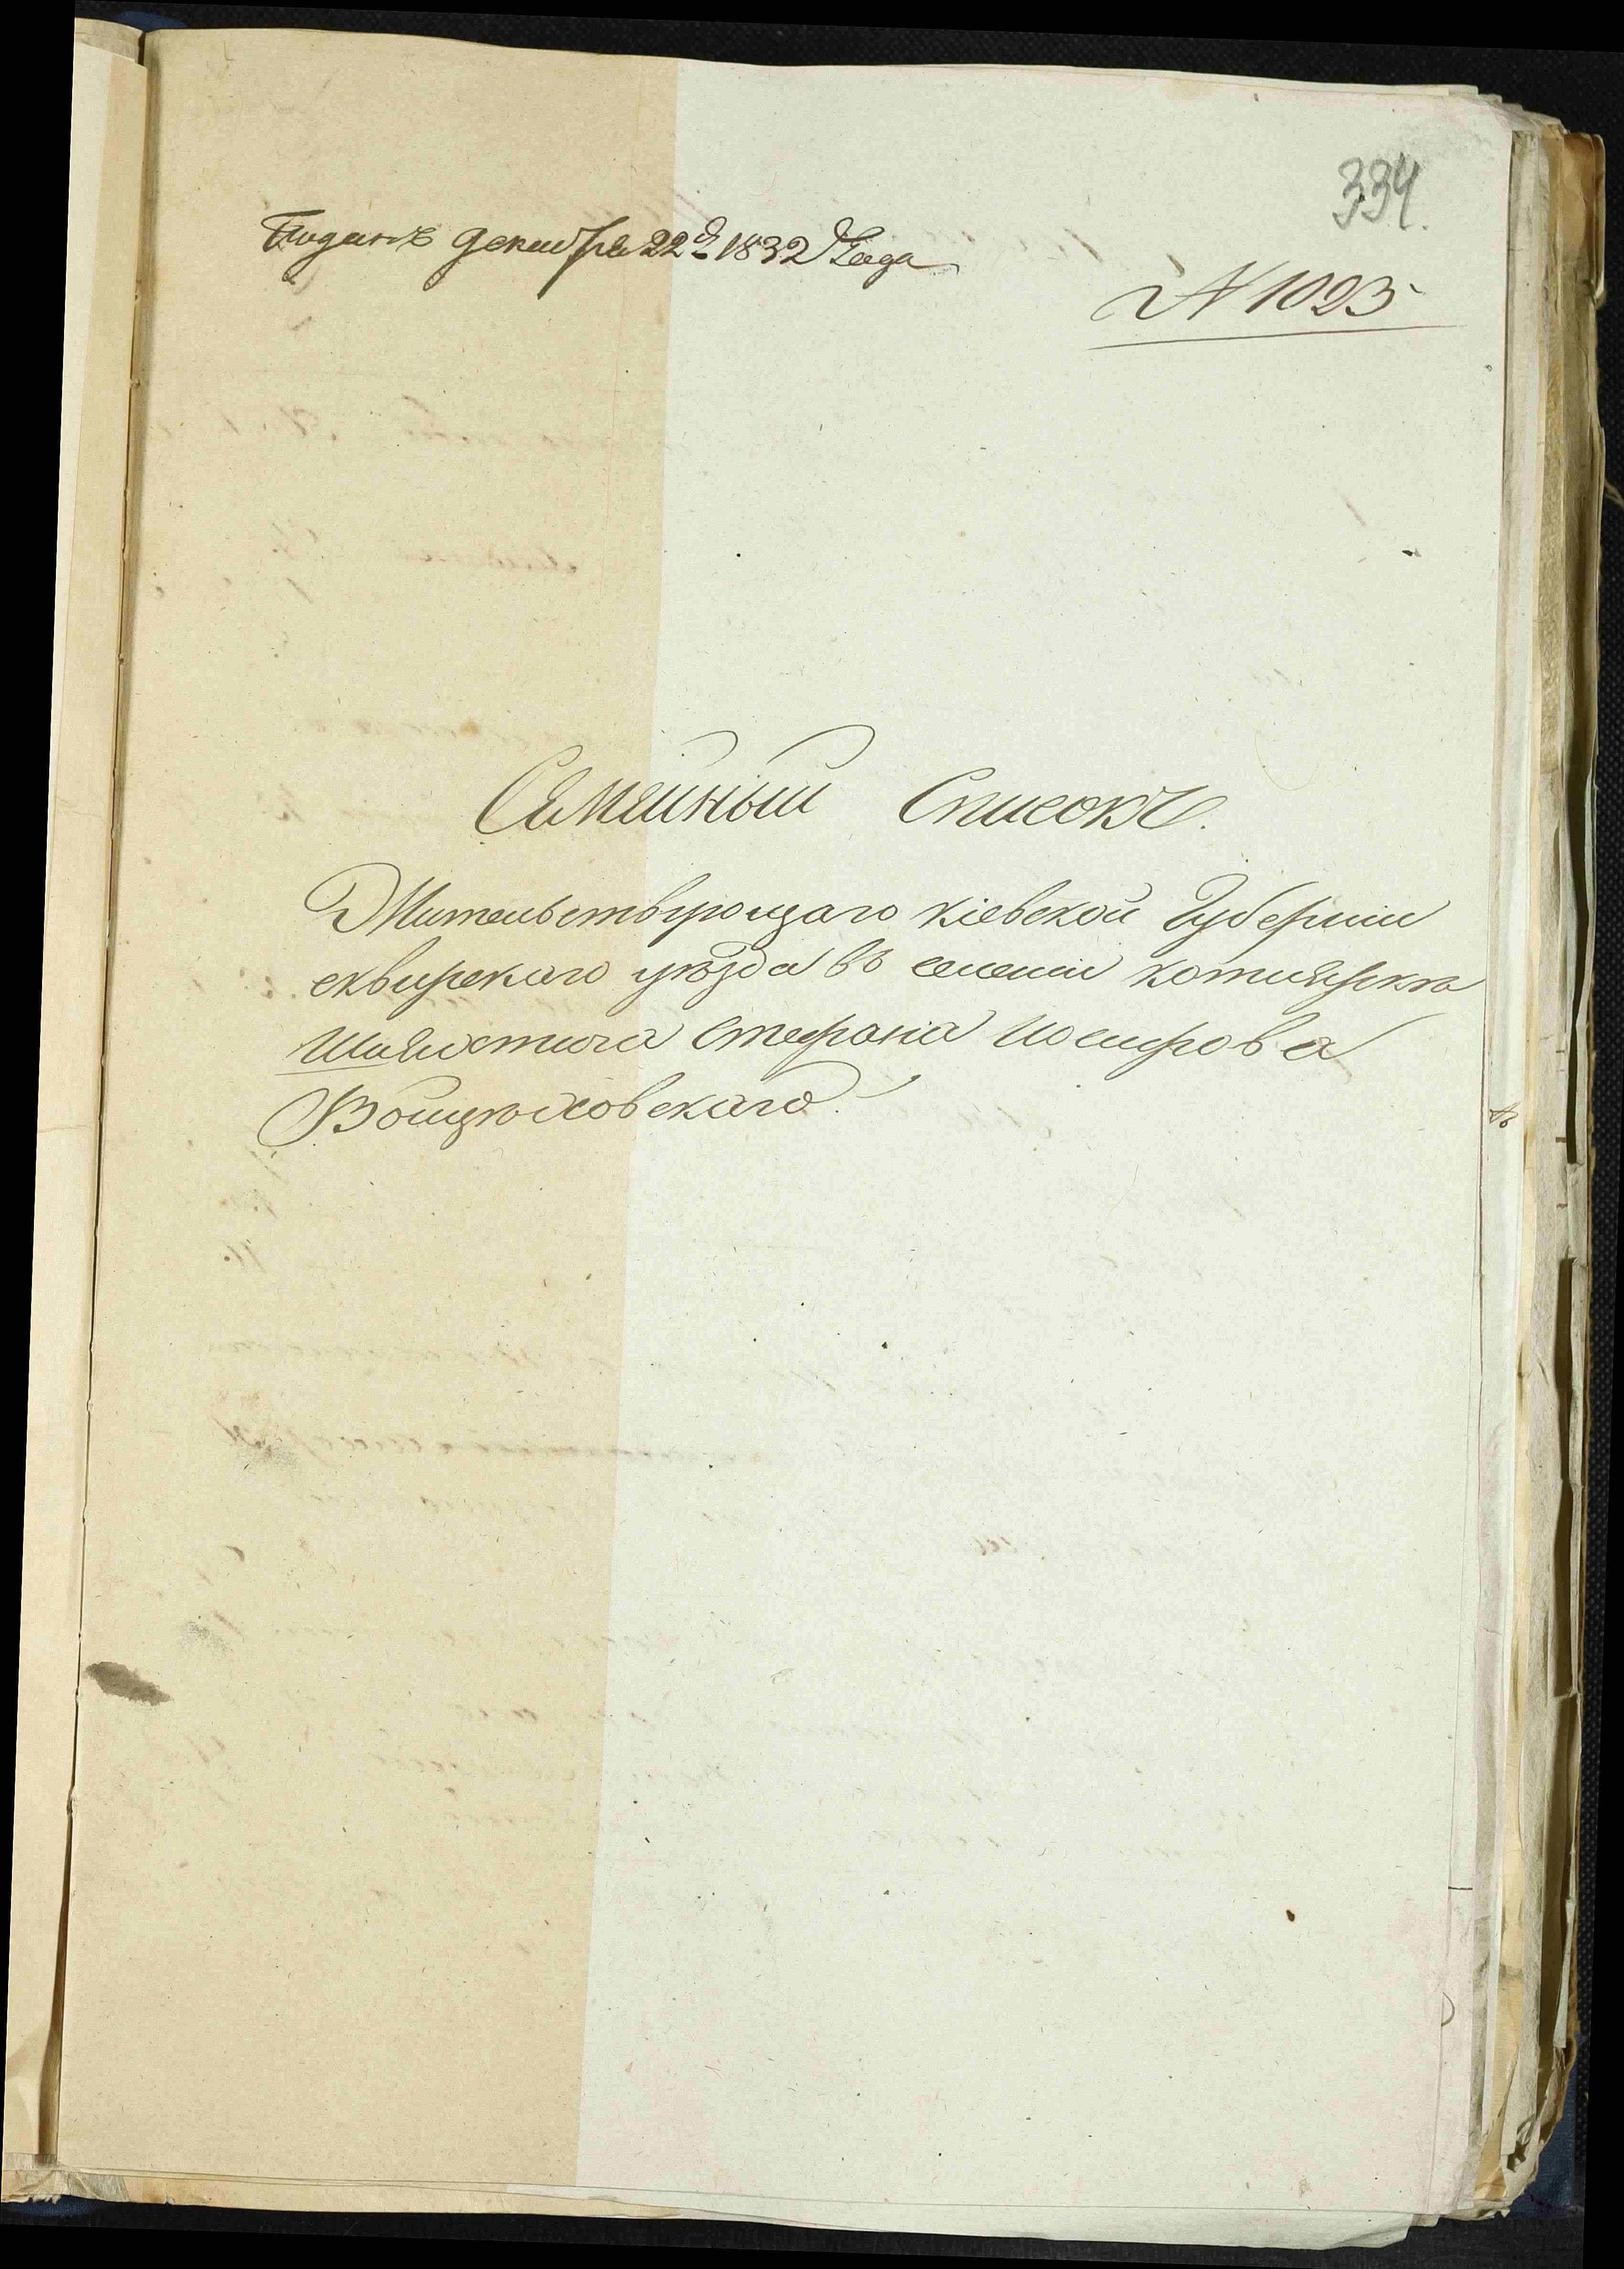 334
Поданъ декабря 22го 1832 Года
№ 1023
Семейный Списокъ.
Жительствующаго кіевской Губерніи
сквирского уѣзда въ селеніи котлярке
Шляхтича Стефана Иосифова
Войцеховскаго.